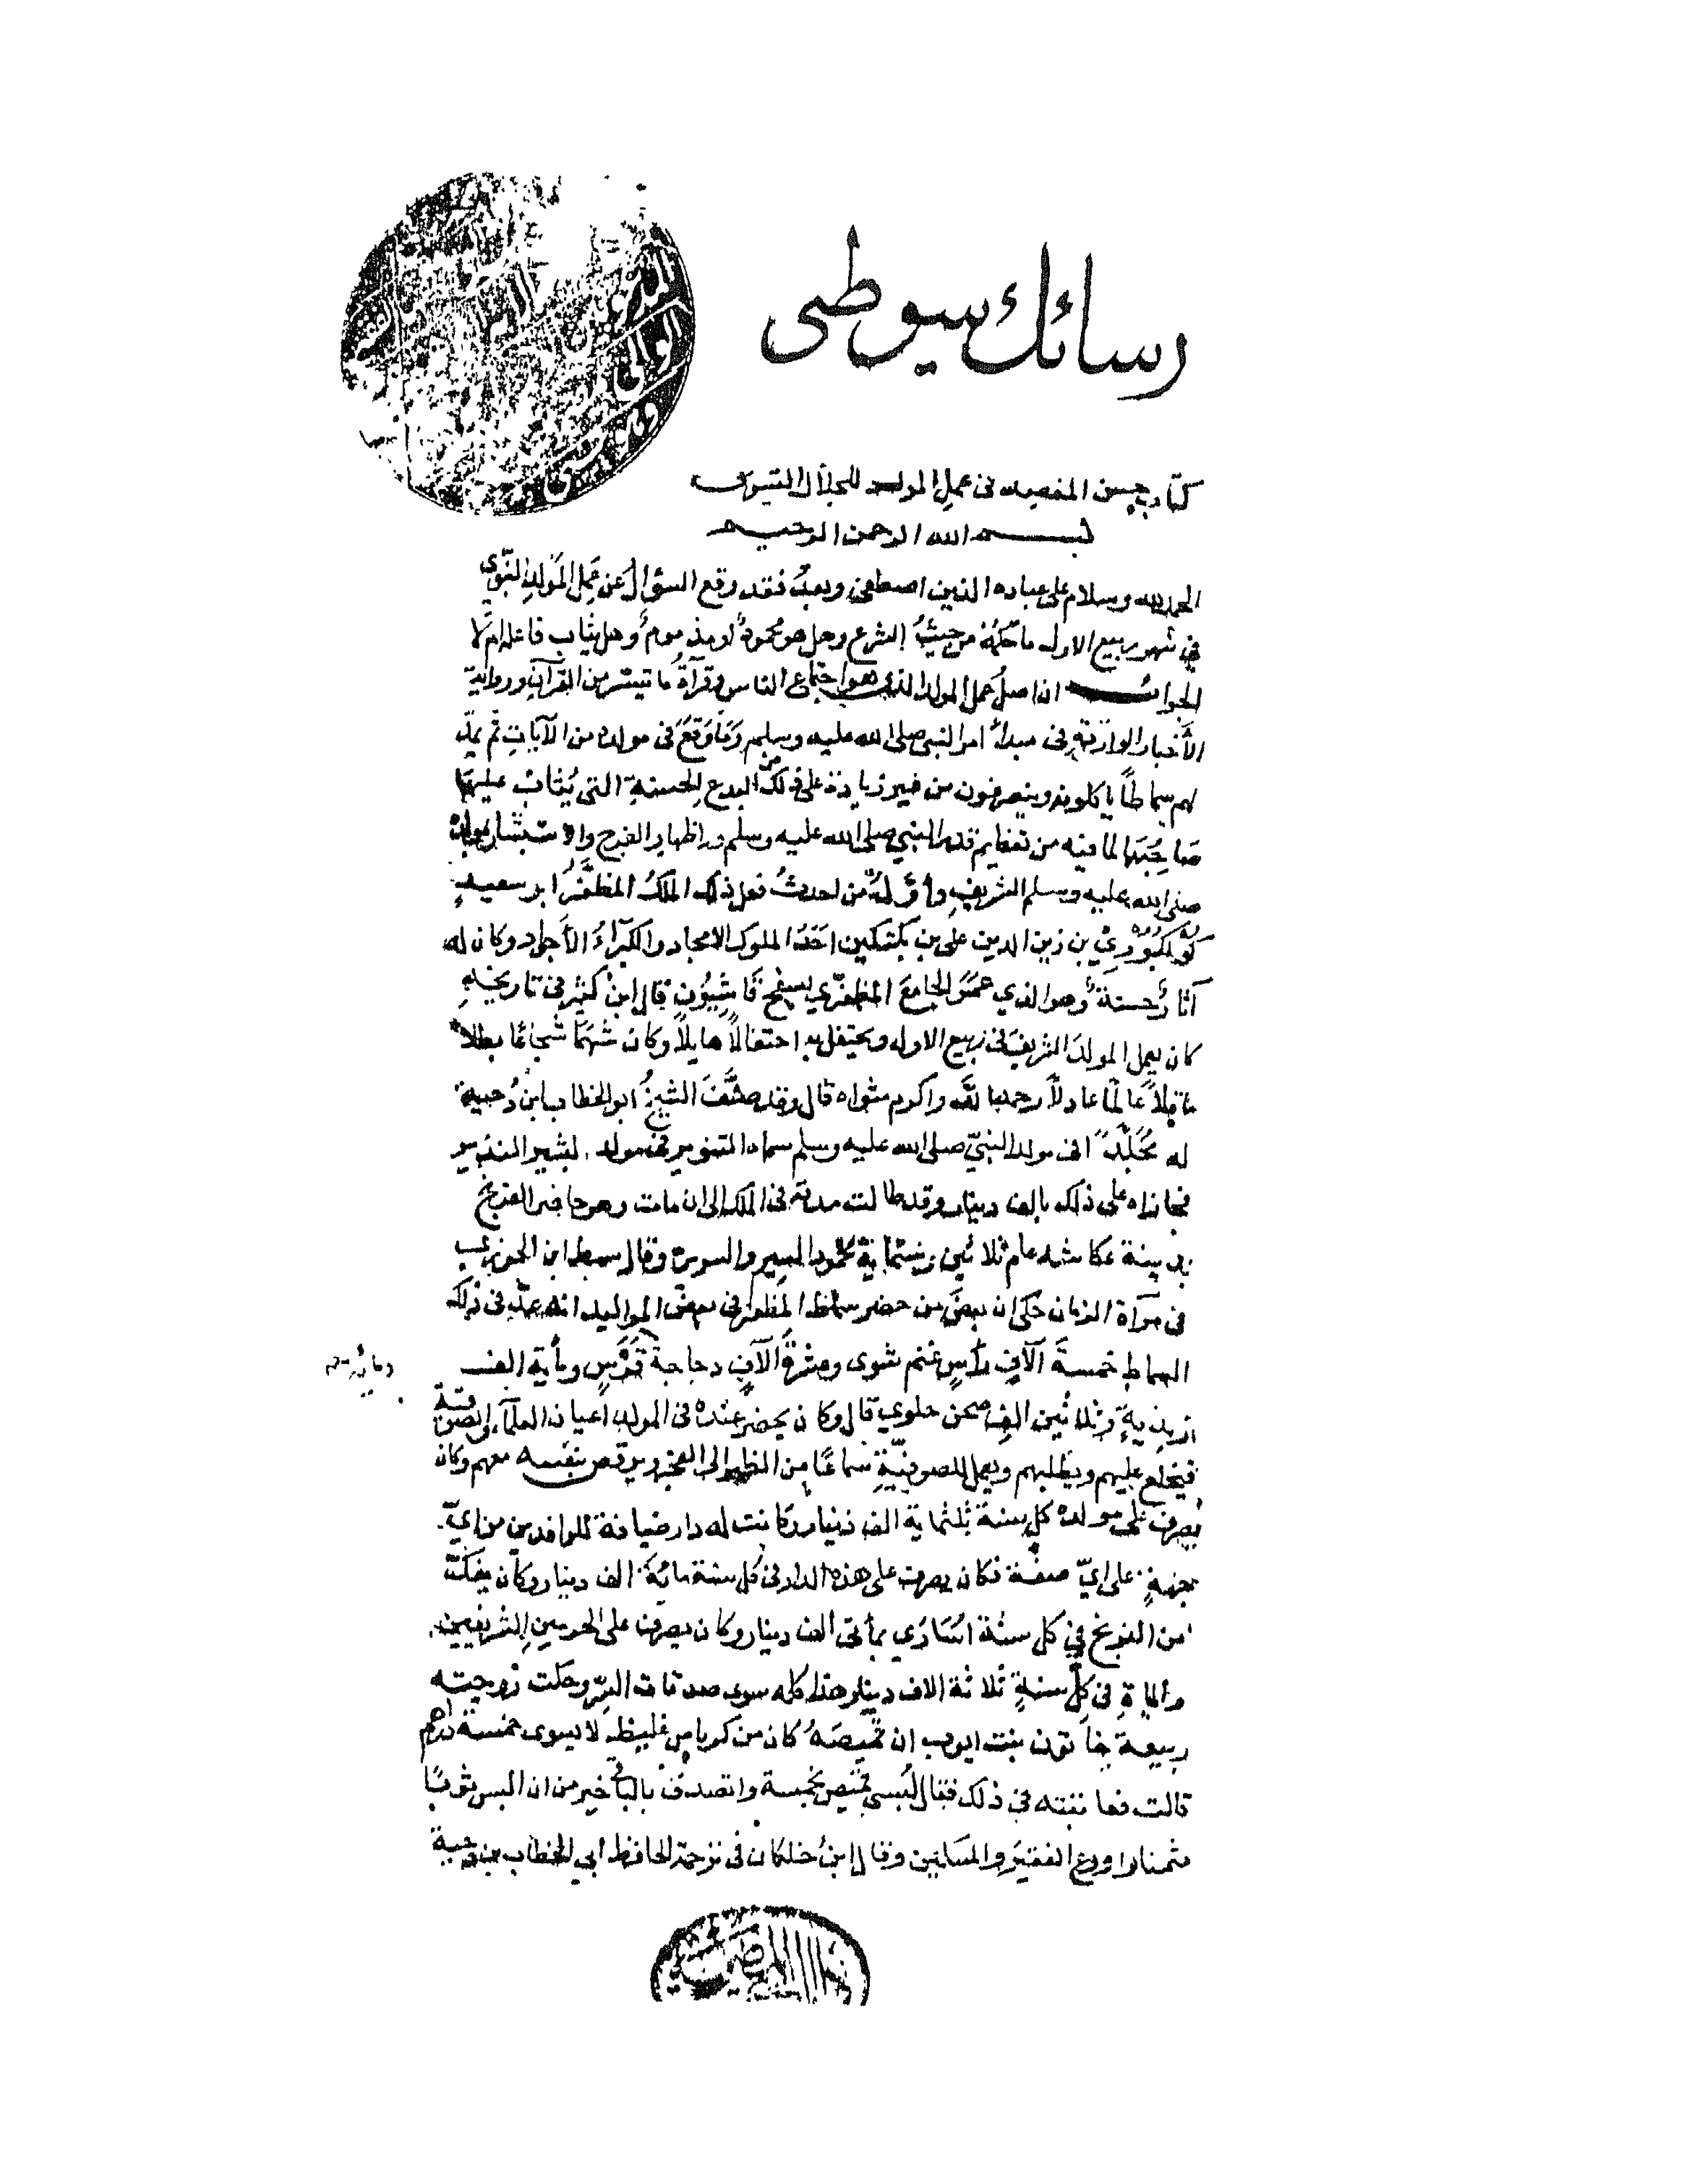 رسائل سيوطى
كتاب حسن المقصد فى عمل المولد للجلال السيوطى
بسم الله الرحمن الرحيم
الحمد لله وسلام على عباده الذين اصطفى وبعد فقد وقع السؤال عن عمل المولد النبوي
في شهر ربيع الاول ما حكمه من حيث الشرع وهل هو محمود او مذموم وهل يثاب فاعله ام لا
الجواب ان اصل عمل المولد الذي هو اجتماع الناس وقرآة ما تيسر من القرآن ورواية
الأخبار الواردة فى مبدأ امر النبي صلى الله عليه وسلم وما وقع فى مولده من الآيات ثم يمد
لهم سماطا ياكلونه وينصرفون من غير زيادة على ذلك من البدع الحسنة التى يثاب عليها
صاحبها لما فيه من تعظيم قدر النبي صلى الله عليه وسلم واظهار الفرح والاستبشار بمولده
صلى الله عليه وسلم الشريف وأول من احدث فعل ذلك الملك المظفر ابو سعيد
كوكبوري بن زين الدين على بن بكتكين احد الملوك الامجاد والكبراء الأجواد وكان له
آثار حسنة وهو الذي عمر الجامع المظفري بسفح قاسيون قال ابن كثير فى تاريخه
كان يعمل المولد الشريف فى ربيع الاول ويحتفل به احتفالا هايلا وكان شهما شجاعا بطلا
عاقلا عالما عادلا رحمه الله واكرم مثواه قال وقد صنف الشيخ ابو الخطاب ابن دحية
له مجلدا فى مولد النبي صلى الله عليه وسلم سماه التنوير فى مولد البشير النذير
فجازاه على ذلك بالف دينار وقد طالت مدته فى الملك الى ان مات وهو حاصر الفرنج
بمدينة عكا سنه عام ثلاثين وستماية محمود السير والسريرة وقال سبط ابن الجوزي
فى مرآة الزمان حكى ان بعض من حضر سماط المظفر فى بعض المواليد انه عد فى ذلك
السماط خمسة آلاف رأس غنم شوى وعشرة آلاف دجاجة ومأية فرس ومأية الف
زبدية وثلاثين الف صحن حلوى قال وكان يحضر عنده فى المولد اعيان العلمآء والصوفية
فيخلع عليهم ويطلبهم ويعمل للصوفية سماعا من الظهر الى الفجر ويرقص بنفسه معهم وكان
يصرف على مولده كل سنة ثلثماية الف دينار وكانت له دار ضيافة للوافدين من اي
جهة على اي صفة فكان يصرف على هذه الدار فى كل سنة ماية الف دينار وكان يفك
من الفرنج في كل سنة اسارى بمأتى الف دينار وكان يصرف على الحرمين الشريفين
والمآء فى كل سنة ثلاثة الاف دينار هذا كله سوى صدقات السر وحكت زوجته
ربيعة خاتون بنت ايوب ان قميصه كان من كرباس غليظ لا يسوى خمسة دراهم
قالت فعاتبته في ذلك فقال لبسى قميص بخمسة واتصدق بالباقى خير من ان البس ثوبا
مثمنا وادع الفقير والمساكين وقال ابن خلكان فى ترجمة الحافظ أبي الخطاب بن دحية